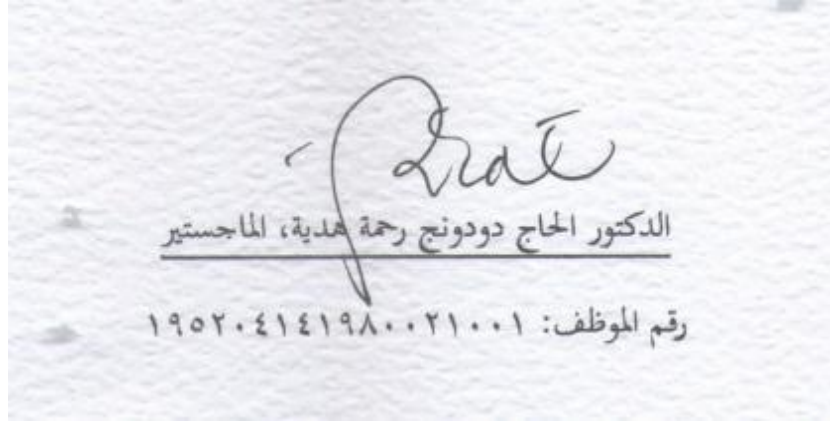 الدكتور الحاج دودونج رحمة هدية، الماجستير
رقم الموظف: ١٩٥٢٠٤١٤١٩٨٠٠٢١٠٠١